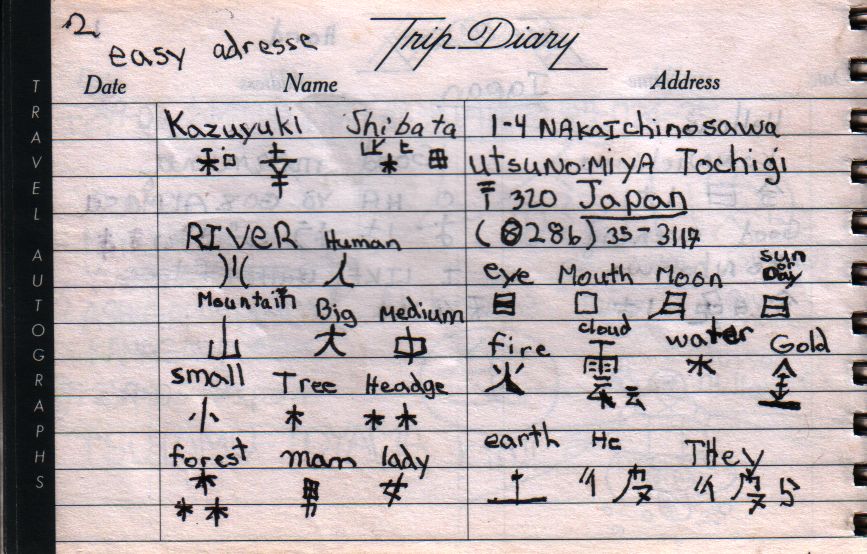 2
easy adresse
Trip Diary
TRAVEL AUTOGRAPHS
Date Name Address
Kazuyuki Shibata
1-4 NAKaIchinosawa
和幸 柴田
UtsuNoMiYA Tochigi
〒 320 Japan
(0286) 35-3117
RIVeR Human
川 人
eye Mouth Moon sun or Day
目 口 月 日
Mountain Big Medium
山 大 中
fire cloud water Gold
火 雲 云 水 金
small Tree Headge
小 木 木木
forest man lady
森 男 女
earth He THey
土 彼 彼ら